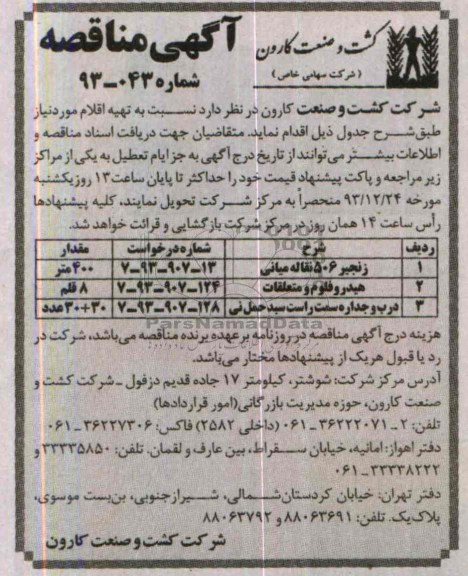 آگهی مناقصه
شماره ۰۴۳-۹۳
کشت و صنعت کارون
(شرکت سهامی خاص)
شرکت کشت و صنعت کارون در نظر دارد نسبت به تهیه اقلام موردنیاز
طبق شرح جدول ذیل اقدام نماید. متقاضیان جهت دریافت اسناد مناقصه و
اطلاعات بیشتر می‌توانند از تاریخ درج آگهی به جز ایام تعطیل به یکی از مراکز
زیر مراجعه و پاکت پیشنهاد قیمت خود را حداکثر تا پایان ساعت ۱۳ روز یکشنبه
مورخه ۹۳/۱۲/۲۴ منحصراً به مرکز شرکت تحویل نمایند، کلیه پیشنهادها
رأس ساعت ۱۴ همان روز در مرکز شرکت بازگشایی و قرائت خواهد شد.
ردیف شرح شماره درخواست مقدار
۱ زنجیر ۵۰۶ نقاله میانی ۱۳-۹۰۷-۹۳-۷ ۴۰۰ متر
۲ هیدروفلوم و متعلقات ۱۲۴-۹۰۷-۹۳-۷ ۸ قلم
۳ درب و جداره سمت راست سبد حمل نی ۱۲۸-۹۰۷-۹۳-۷ ۳۰+۳۰ عدد
ParsNamadData
هزینه درج آگهی مناقصه در روزنامه بر عهده برنده مناقصه می‌باشد، شرکت در
رد یا قبول هر یک از پیشنهادها مختار می‌باشد.
آدرس مرکز شرکت: شوشتر، کیلومتر ۱۷ جاده قدیم دزفول - شرکت کشت و
صنعت کارون، حوزه مدیریت بازرگانی (امور قراردادها)
تلفن: ۲ - ۳۶۲۲۲۰۷۱-۰۶۱ (داخلی ۲۵۸۲) فاکس: ۳۶۲۲۷۳۰۶-۰۶۱
دفتر اهواز: امانیه، خیابان سقراط، بین عارف و لقمان. تلفن: ۳۳۳۳۵۸۵۰ و
۳۳۳۳۸۲۲۲-۰۶۱
دفتر تهران: خیابان کردستان شمالی، شیراز جنوبی، بن‌بست موسوی،
پلاک یک. تلفن: ۸۸۰۶۳۶۹۱ و ۸۸۰۶۳۷۹۲
شرکت کشت و صنعت کارون